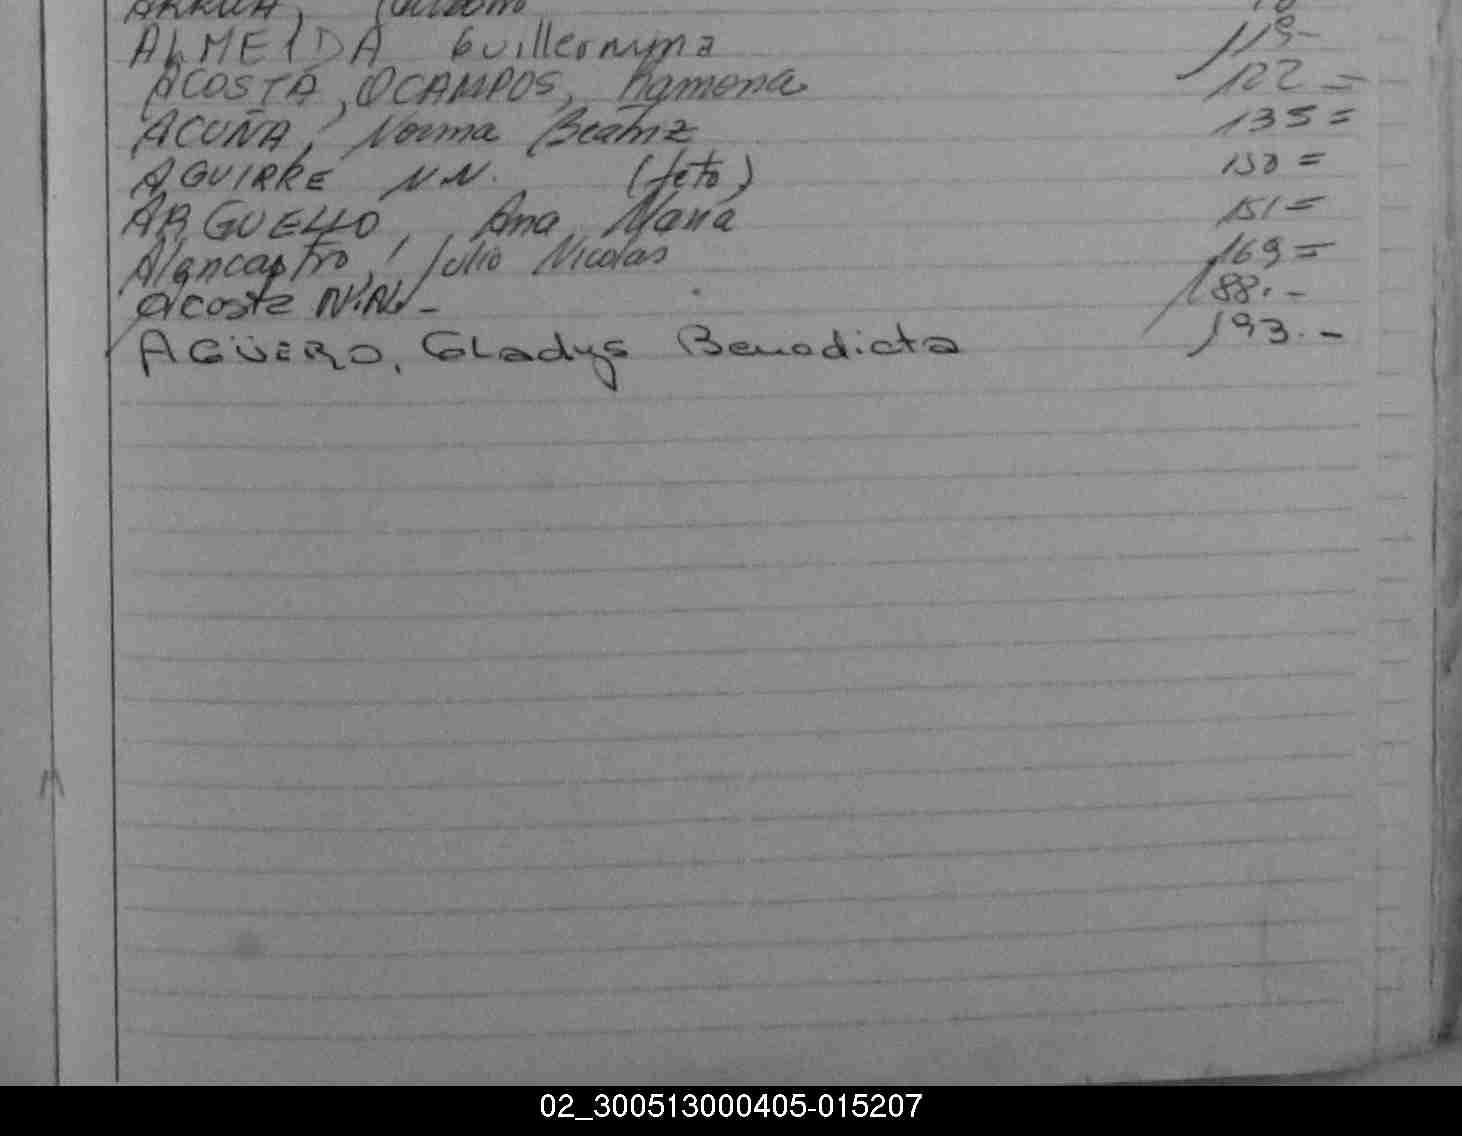 ALMEIDA Guillermina 119-
ACOSTA, OCAMPOS, Ramona 122=
ACUÑA, Norma Beatriz 135=
AGUIRRE N.N. (feto) 150=
ARGUELLO, Ana María 151=
Alancastro, Julio Nicolas 169=
Acosta N.N.- 188.-
AGÜERO, Gladys Benedicta 193.-
02_300513000405-015207